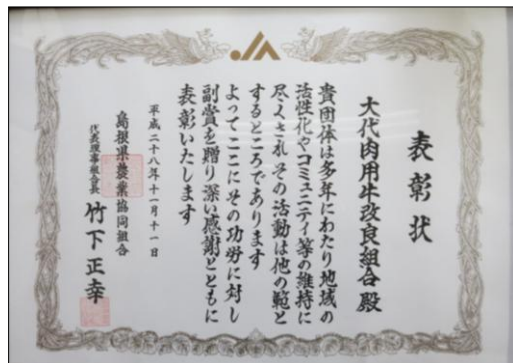 表彰状
大代肉用牛改良組合殿
貴団体は多年にわたり地域の
活性化やコミュニティ等の維持に
尽くされ その活動は他の範と
するところであります
よってここにその功労に対し
副賞を贈り深い感謝とともに
表彰いたします
平成二十八年十一月十一日
島根県農業協同組合
代表理事組合長 竹下正幸